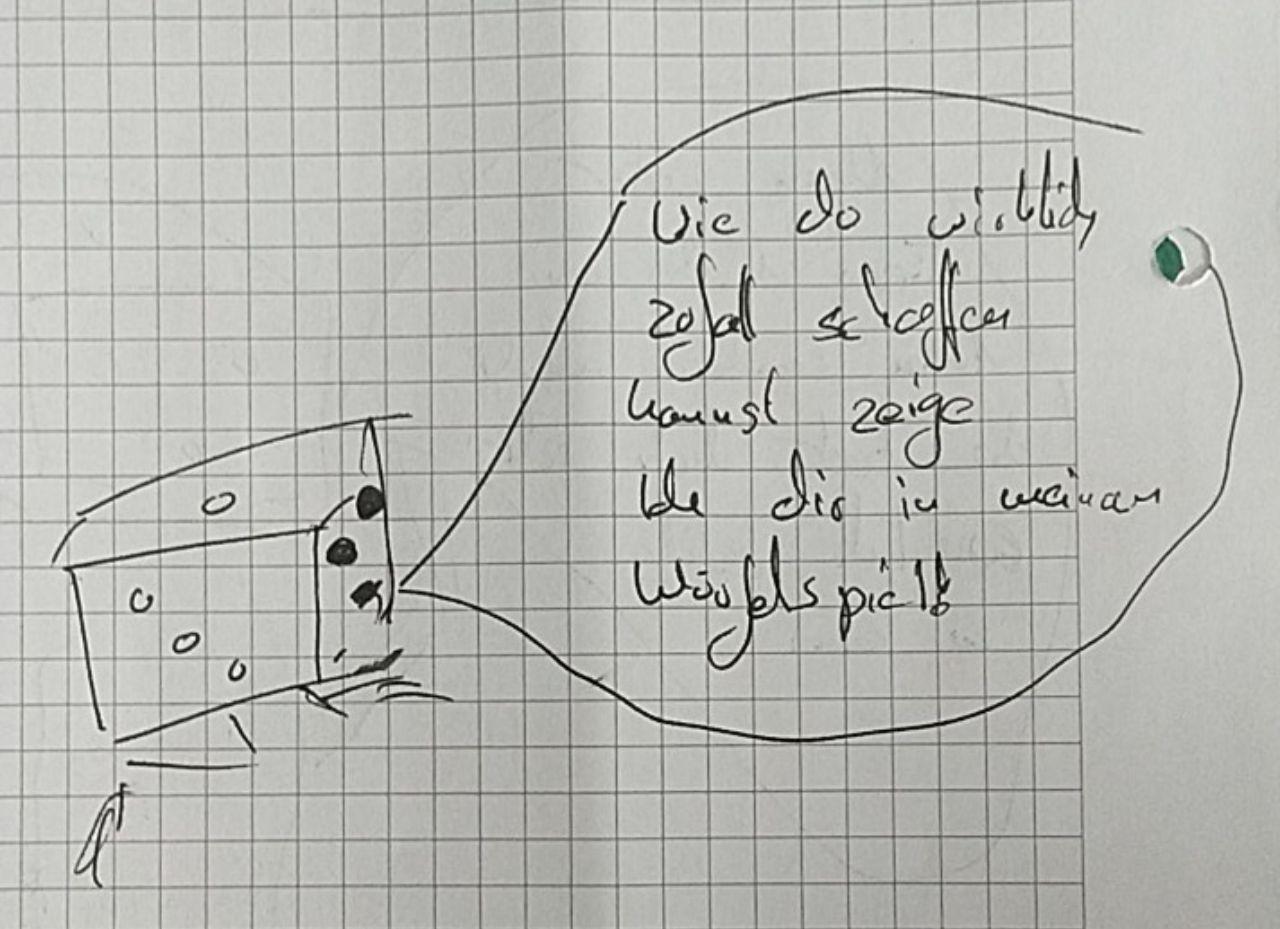 Wie du wirklich
zufall schaffen
kannst zeige
Ich dir in meinem
Würfelspiel!